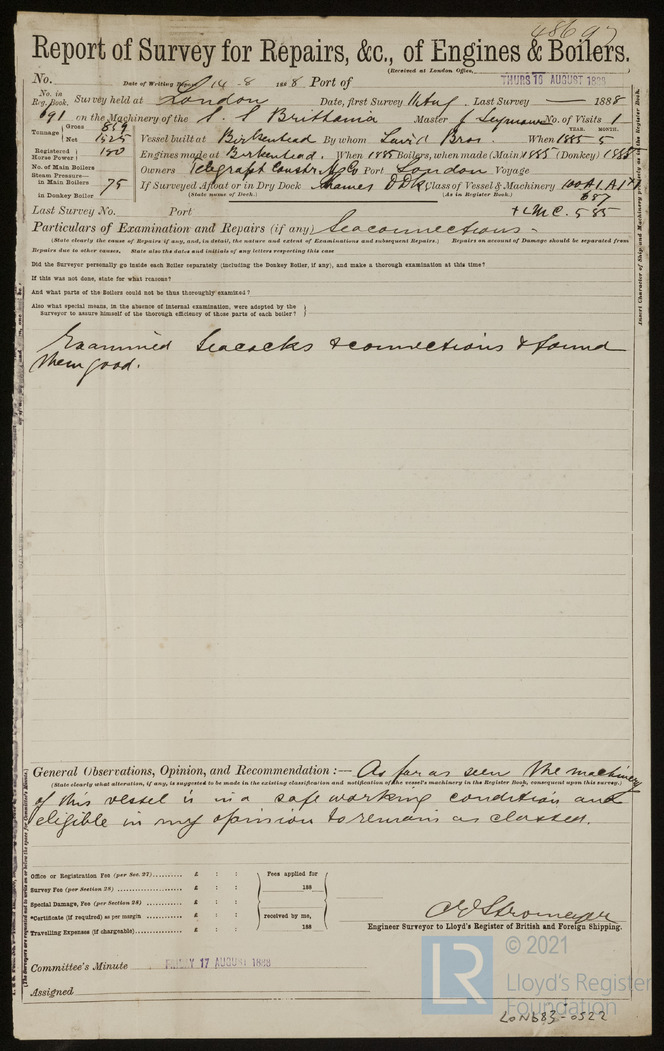 48697
Report of Survey for Repairs, &c., of Engines & Boilers.
(Received at London Office,
No. Date of Writing Report 14 . 8 1888 Port of THURS 16 AUGUST 1888
No. in Reg. Book. Survey held at London Date, first Survey 11 Aug Last Survey — 1888
691 on the Machinery of the S. S. Brittania Master J Seymour No. of Visits 1
Tonnage Gross
Net 1525 Vessel built at Birkenhead By whom Laird Bros. When 1885 5
YEAR. MONTH.
Registered Horse Power 180 Engines made at Birkenhead. When 1885 Boilers, when made (Main) 1885 (Donkey) 1885
No. of Main Boilers Owners Telegraph Constr. & M. Co Port London Voyage
Steam Pressure— in Main Boilers 75 If Surveyed Afloat or in Dry Dock Thames D Dk Class of Vessel & Machinery 100 A1
in Donkey Boiler (State name of Dock.) (As in Register Book.) 87
Last Survey No. Port + LMC. 5 85
Particulars of Examination and Repairs (if any) Seaconnections -
(State clearly the cause of Repairs if any, and, in detail, the nature and extent of Examinations and subsequent Repairs.) Repairs on account of Damage should be separated from
Repairs due to other causes, State also the dates and initials of any letters respecting this case
Did the Surveyor personally go inside each Boiler separately (including the Donkey Boiler, if any), and make a thorough examination at this time?
If this was not done, state for what reasons?
And what parts of the Boilers could not be thoroughly examined?
Also what special means, in the absence of internal examination, were adopted by the
Surveyor to assure himself of the thorough efficiency of those parts of each boiler?
Examined Seacocks & connections & found
them good.
General Observations, Opinion, and Recommendation :— As far as seen the machinery
(State clearly what alteration, if any, is suggested to be made in the existing classification and notification of the vessel's machinery in the Register Book, consequent upon this survey.)
of this vessel is in a safe working condition and
eligible in my opinion to remain as classed.
Office or Registration Fee (per Sec. 27) £ : : Fees applied for
Survey Fee (per Section 28) £ : : 188
Special Damage, Fee (per Section 28) £ : :
*Certificate (if required) as per margin £ : : received by me,
Travelling Expenses (if chargeable) £ : : 188
C E Stromeyer
Engineer Surveyor to Lloyd's Register of British and Foreign Shipping.
Committee's Minute FRIDAY 17 AUGUST 1888
Assigned
LR © 2021
Lloyd's Register
Foundation
LON683-0522
Insert Character of Ship and Machinery precisely as in the Register Book.